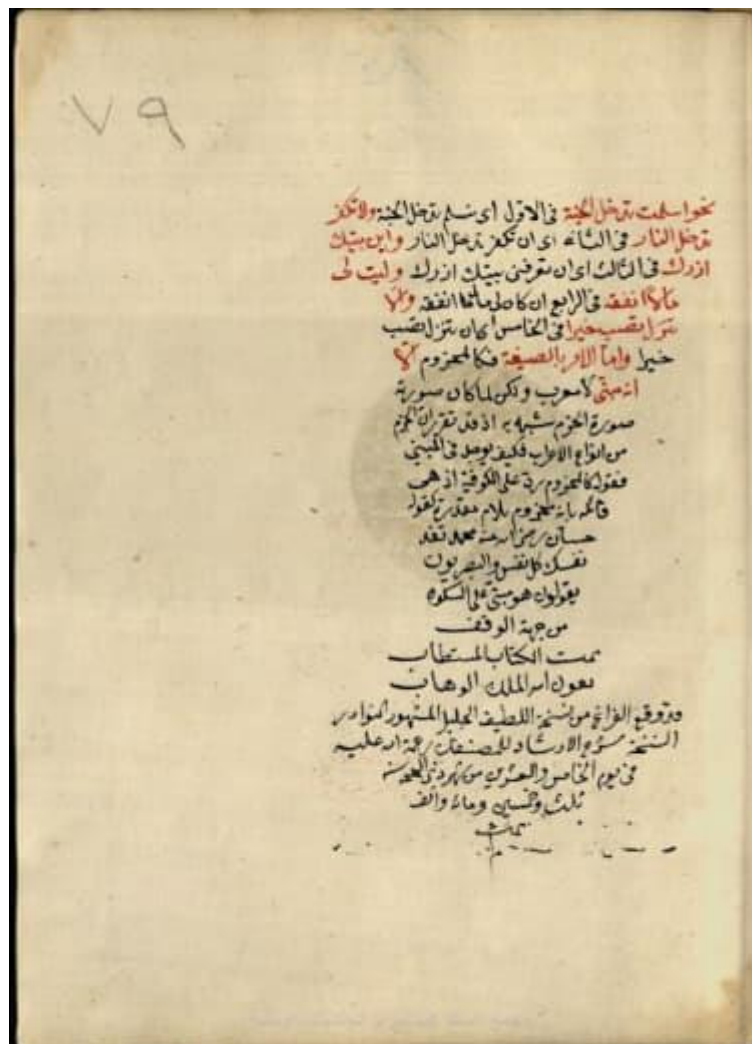 ٧٩
نحو اسلمت تدخل الجنة فى الاول اى تسلم تدخل الجنة ولا تكفر
تدخل النار فى الثانى اى ان تكفر تدخل النار واين بيتك
ازرك فى الثالث اى ان تعرفنى بيتك ازرك وليت لى
مالا انفقه فى الرابع ان كان لى مالا انفقه والا
تنزل تصب خيرا فى الخامس اى ان تنزل تصب
خيرا واما الامر بالصيغة فكالمجزوم الا
انه مبنى لا معرب ولكن لما كان صورته
صورة الجزم شبهه به اذ قد تقرر ان الجزم
من انواع الاعراب فكيف يوجد فى المبنى
فقوله كالمجزوم رد على الكوفية اذ هى
قائلة بانه مجزوم بلام مقدرة كقوله
حسان رضى الله عنه محمد تفد
نفسك كل نفس والبصريون
يقولون هو مبنى على السكون
من جهة الوقف
تمت الكتاب المستطاب
بعون الله الملك الوهاب
وقد وقع الفراغ من نسخة اللطيف الجليل المشهور
النسخة الارشاد رحمة الله عليه
فى يوم الخامس والعشرين من شهر ذى الحجة سنة
ثلث وخمسين ومائة والف
تمت
م